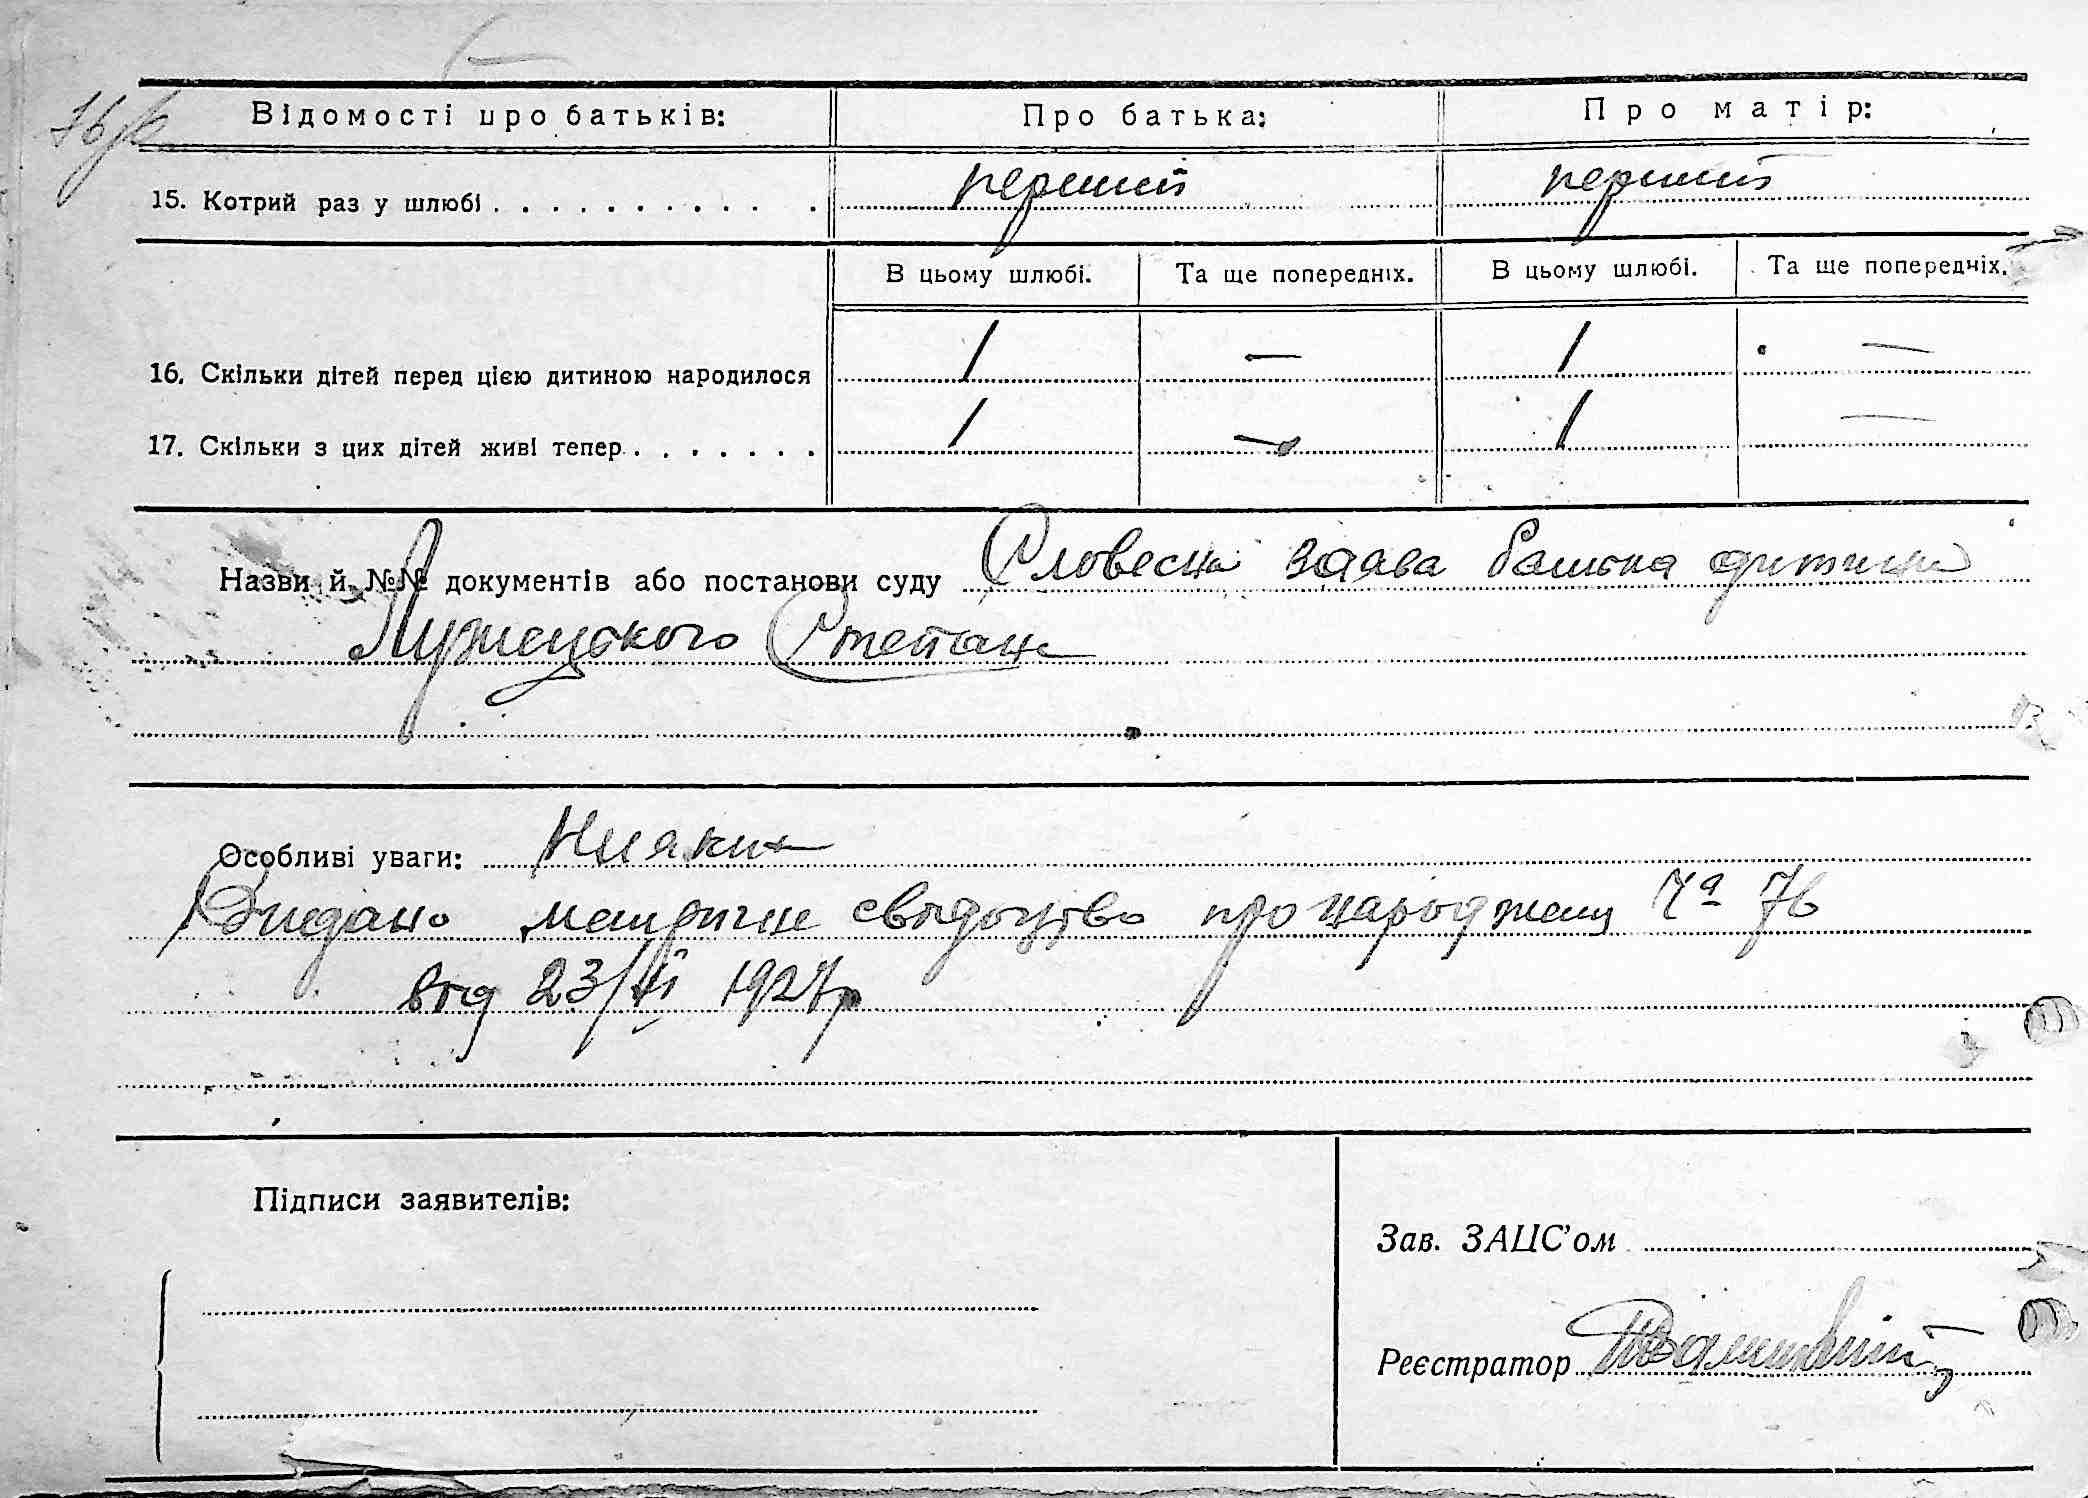 Відомості про батьків: Про батька: Про матір:
15. Котрий раз у шлюбі . . . . . . . . . . . перший перший
В цьому шлюбі. Та ще попередніх. В цьому шлюбі. Та ще попередніх.
16. Скільки дітей перед цією дитиною народилося 1 — 1 —
17. Скільки з цих дітей живі тепер . . . . . . . 1 — 1 —
Назви й №№ документів або постанови суду Словесна заява батька дитини
Лужецького Степана
Особливі уваги: Ніяких
Видано метричне свідоцтво про народжен Ч 76
від 23/ 1927р
Підписи заявителів:
Зав. ЗАЦС'ом
Реєстратор